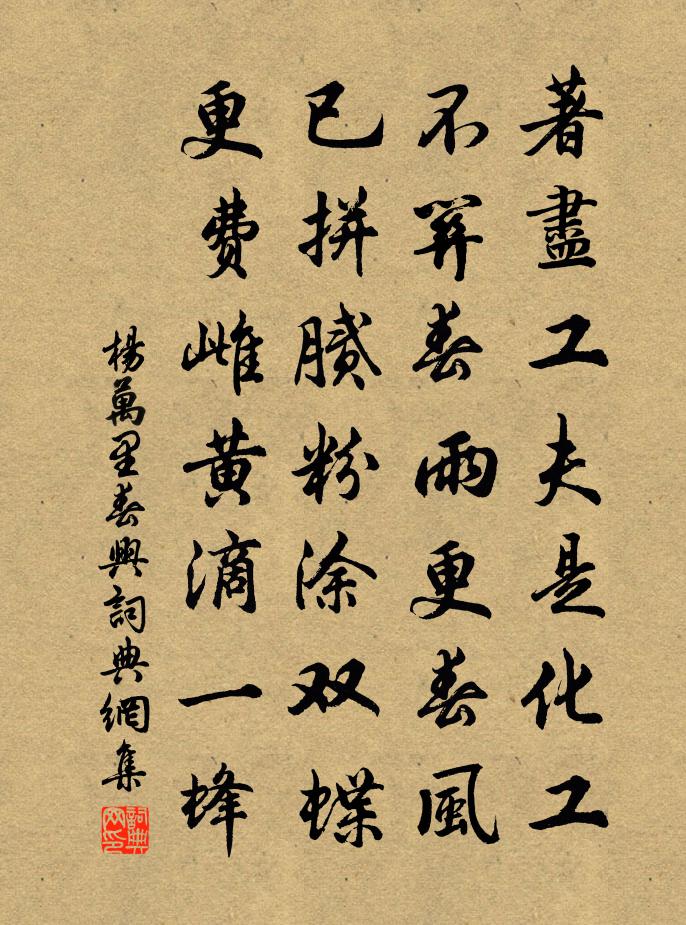 著盡工夫是化工
不算春雨更春風
已拼膩粉涂双蝶
更費雌黄滴一蜂
楊萬里春興詞典網集
詞典网印